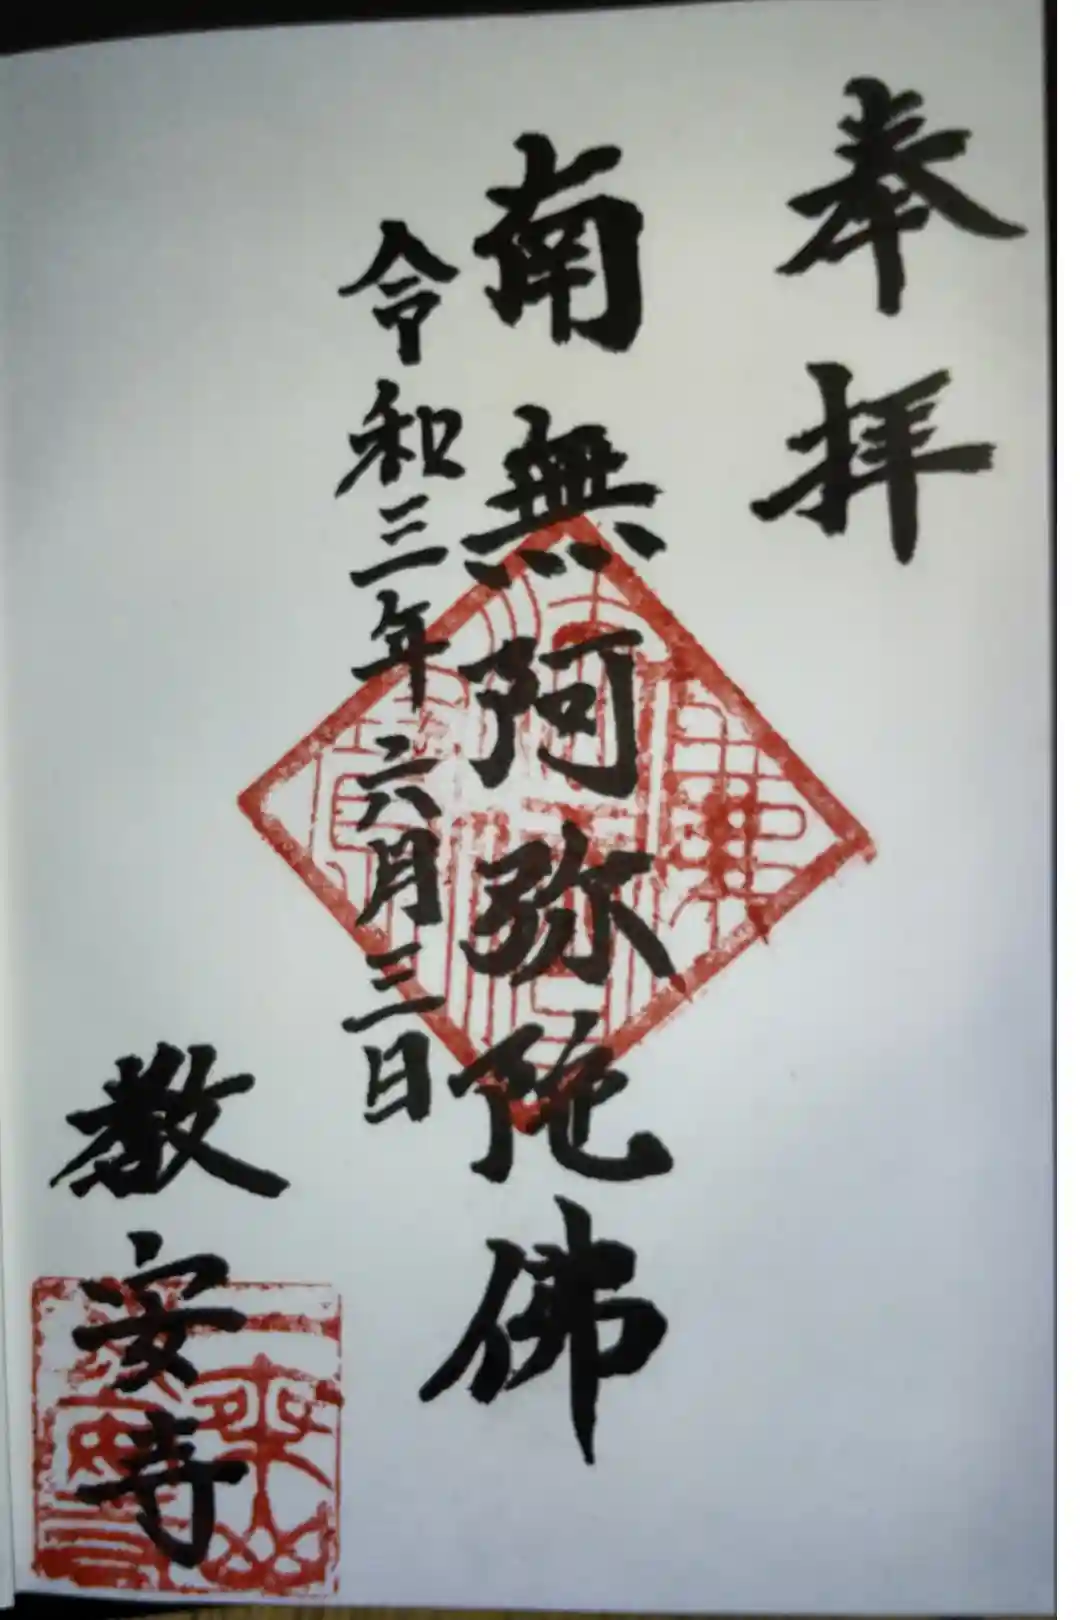 奉拝
南無阿弥陀佛
令和三年六月三日
教安寺